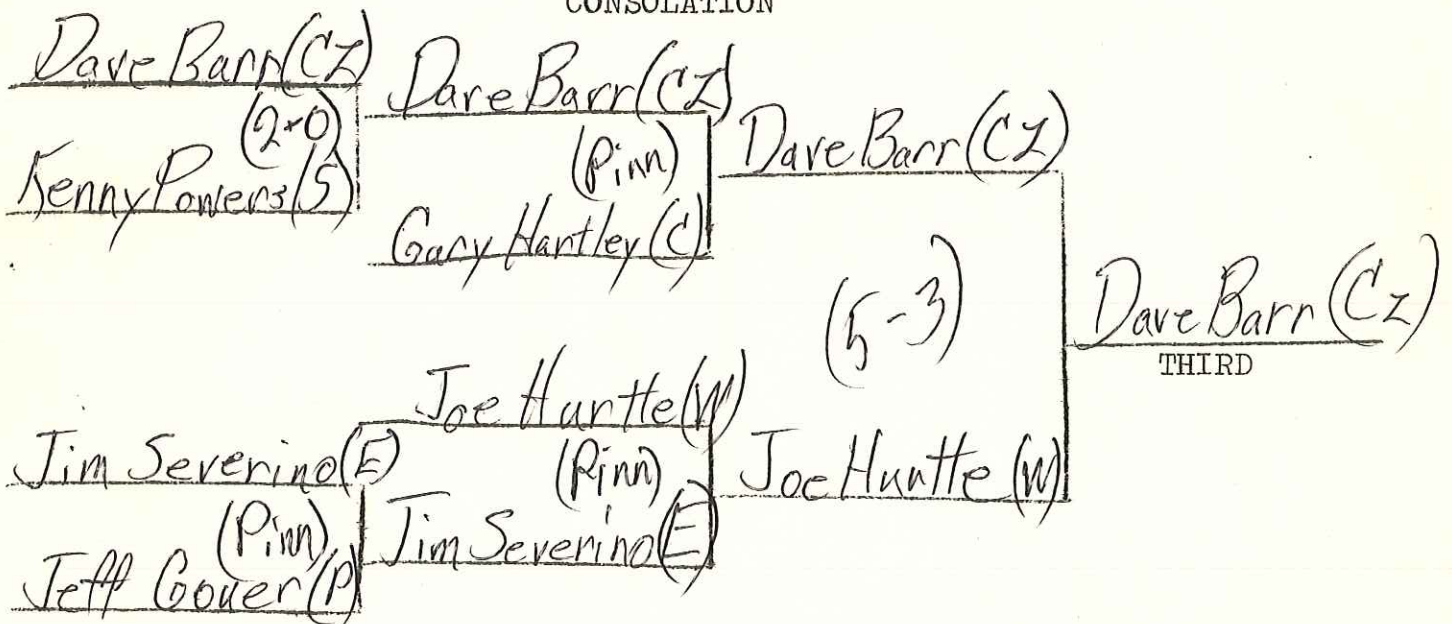 CONSOLATION
Dave Barr (CZ)
(2-0)
Kenny Powers (S)
Dave Barr (CZ)
(Pinn)
Gary Hartley (C)
Dave Barr (CZ)
(5-3)
Dave Barr (CZ)
THIRD
Joe Hurtte (W)
(Pinn)
Jim Severino (E)
Jim Severino (E)
(Pinn)
Jeff (P)
Joe (W)